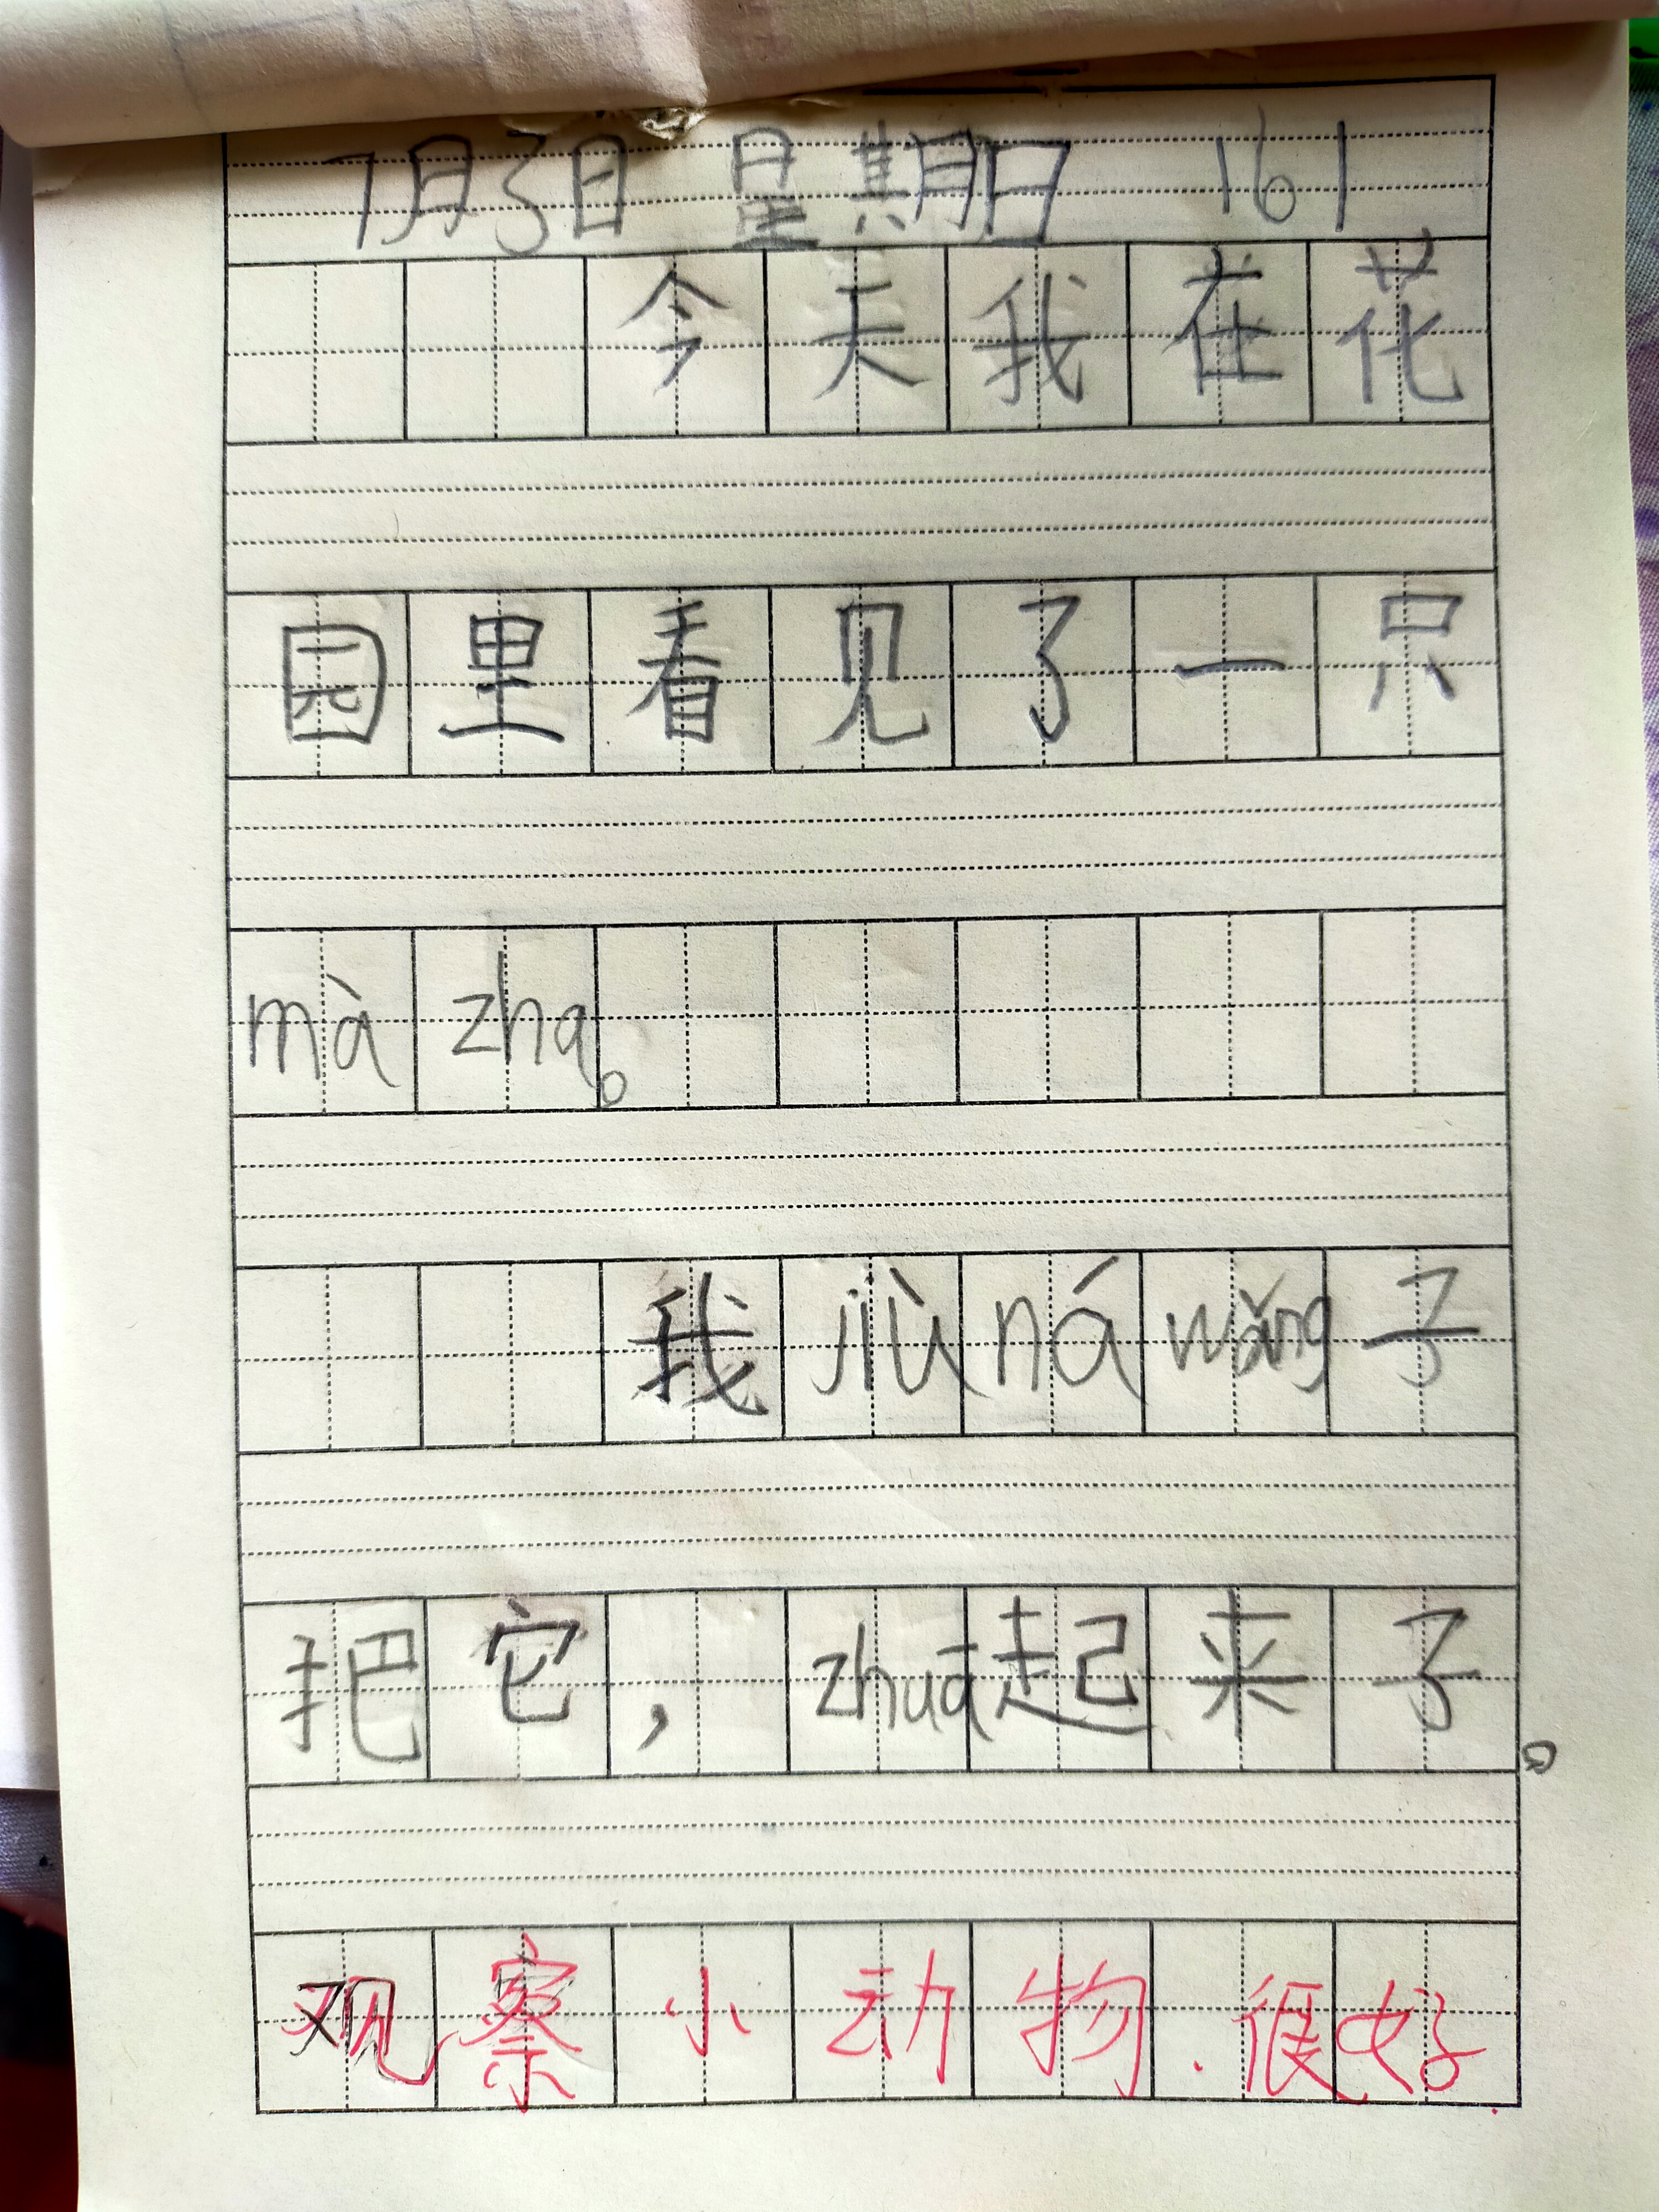 7月3日 星期日 161
今天我在花
园里看见了一只
mà zha。
我jiù ná wǎng子
把它，zhuā起来子。
观察小动物.很好